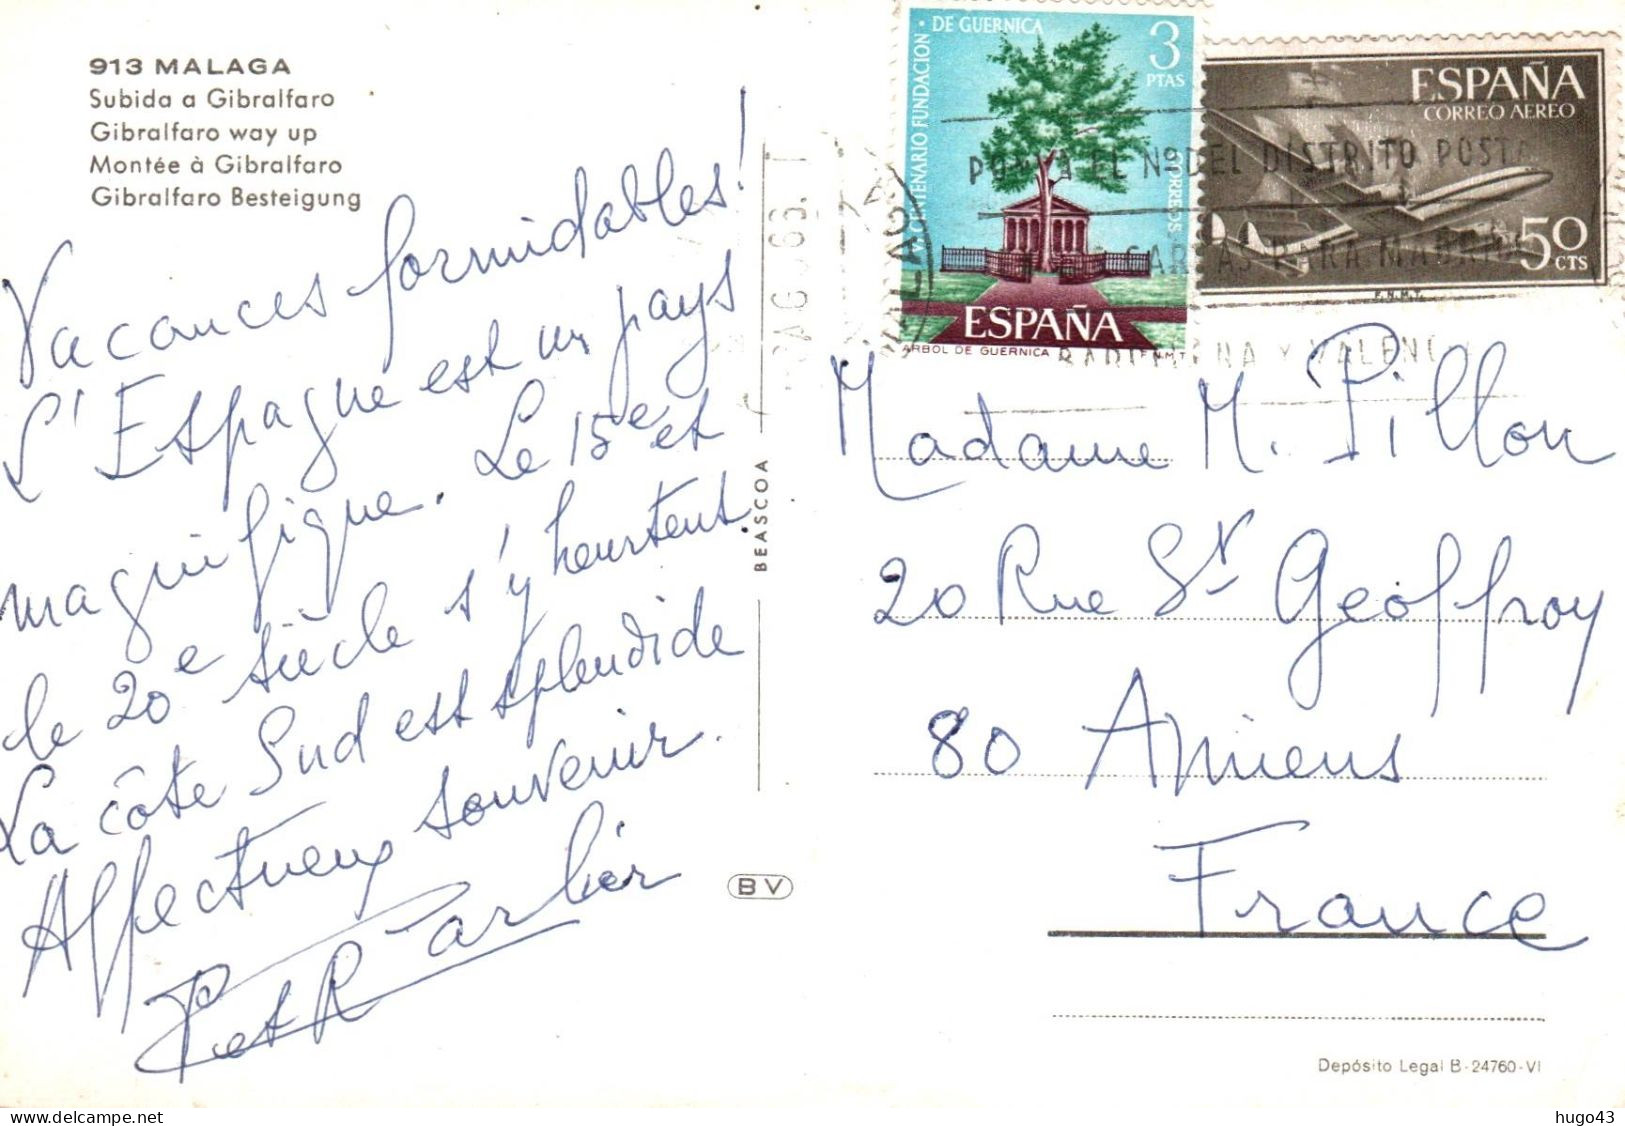 913 MALAGA
Subida a Gibralfaro
Gibralfaro way up
Montée à Gibralfaro
Gibralfaro Besteigung
Vacances formidables!
L'Espagne est un pays
magnifique. Le 15e et
le 20e siècle s'y heurtent.
La côte Sud est splendide
Affectueux souvenir.
P et R Carlier
BEASCOA
BV
V CENTENARIO FUNDACION · DE GUERNICA
3
PTAS
CORREOS
ESPAÑA
ARBOL DE GUERNICA F.N.M.T.
ESPAÑA
CORREO AEREO
50
CTS
F.N.M.T.
MALAGA
PONGA EL Nº DEL DISTRITO POSTA
CARTAS PARA MADRID
BARCELONA Y VALENC
Madame M. Pillon
20 Rue St Geoffroy
80 Amiens
France
Depósito Legal B-24760-VI
hugo43